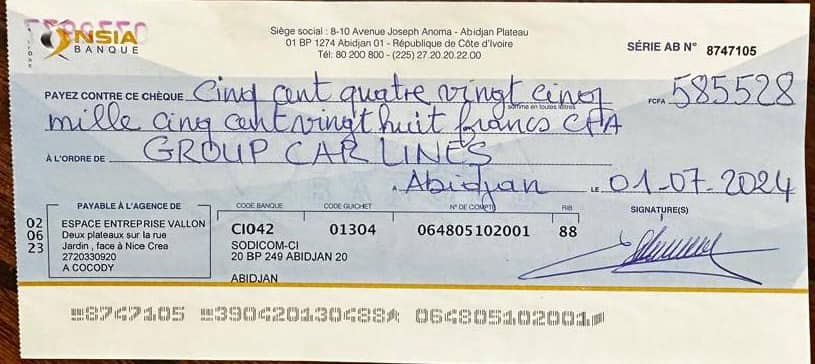 NSIA
BANQUE
Siège social : 8-10 Avenue Joseph Anoma - Abidjan Plateau
01 BP 1274 Abidjan 01 - République de Côte d'Ivoire
Tél: 80 200 800 - (225) 27.20.20.22.00
SÉRIE AB N° 8747105
PAYEZ CONTRE CE CHÈQUE Cinq cent quatre vingt cinq
somme en toutes lettres
FCFA 585528
mille cinq cent vingt huit francs CFA
À L'ORDRE DE GROUP CAR LINES
A Abidjan LE 01-07-2024
PAYABLE À L'AGENCE DE
ESPACE ENTREPRISE VALLON
Deux plateaux sur la rue
Jardin , face à Nice Crea
2720330920
A COCODY
02
06
23
CODE BANQUE CODE GUICHET N° DE COMPTE RIB
CI042 01304 064805102001 88
SODICOM-CI
20 BP 249 ABIDJAN 20
ABIDJAN
SIGNATURE(S)
8747105 390420130488 064805102001